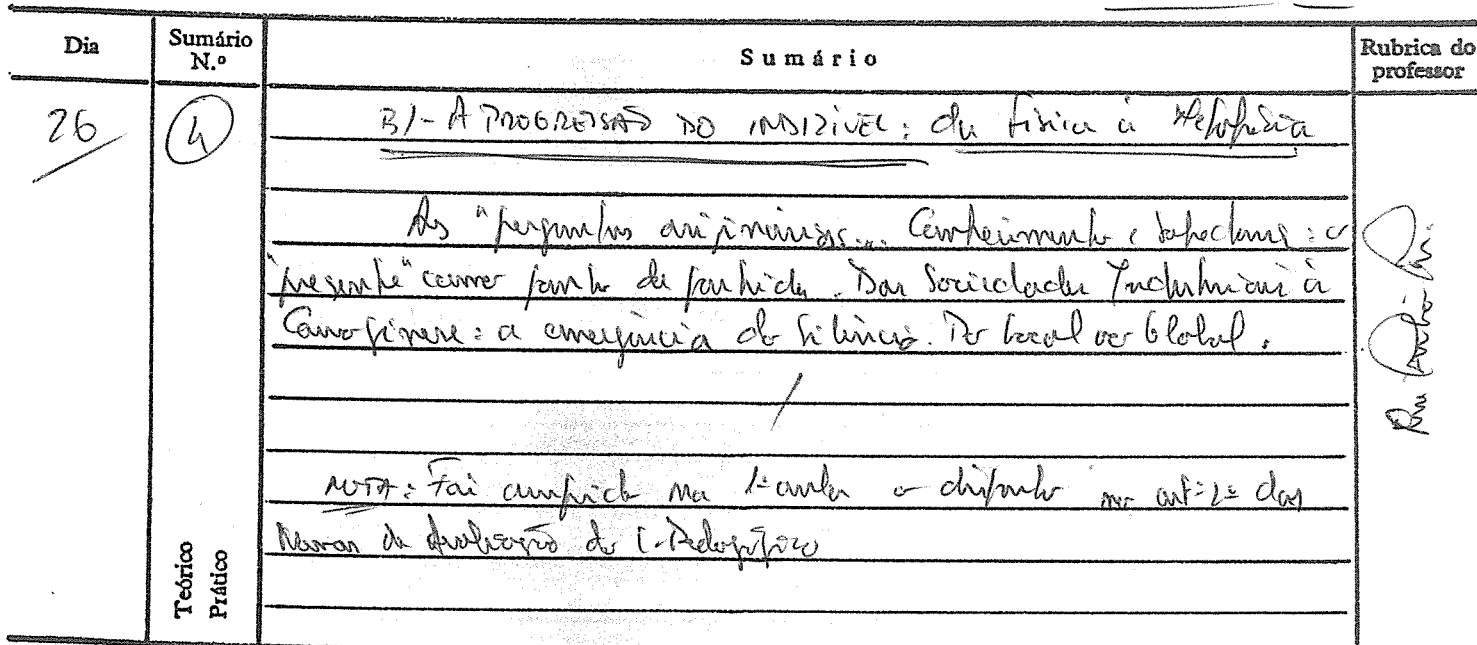 Dia
Sumário N.º
Sumário
Rubrica do professor
26
4
B/- A PROGRESSÃO DO INDIZÍVEL: da Física à Metafísica
As "perguntas originárias... Conhecimento e Sabedoria: o
"presente" como ponto de partida. Das Sociedades Industriais à
: a emergência do Silêncio. Do local ao Global.
NOTA: Foi cumprido na 1ª aula o disposto no artº 2º das
Normas de Avaliação do C. Pedagógico
Teórico
Prático
Rui